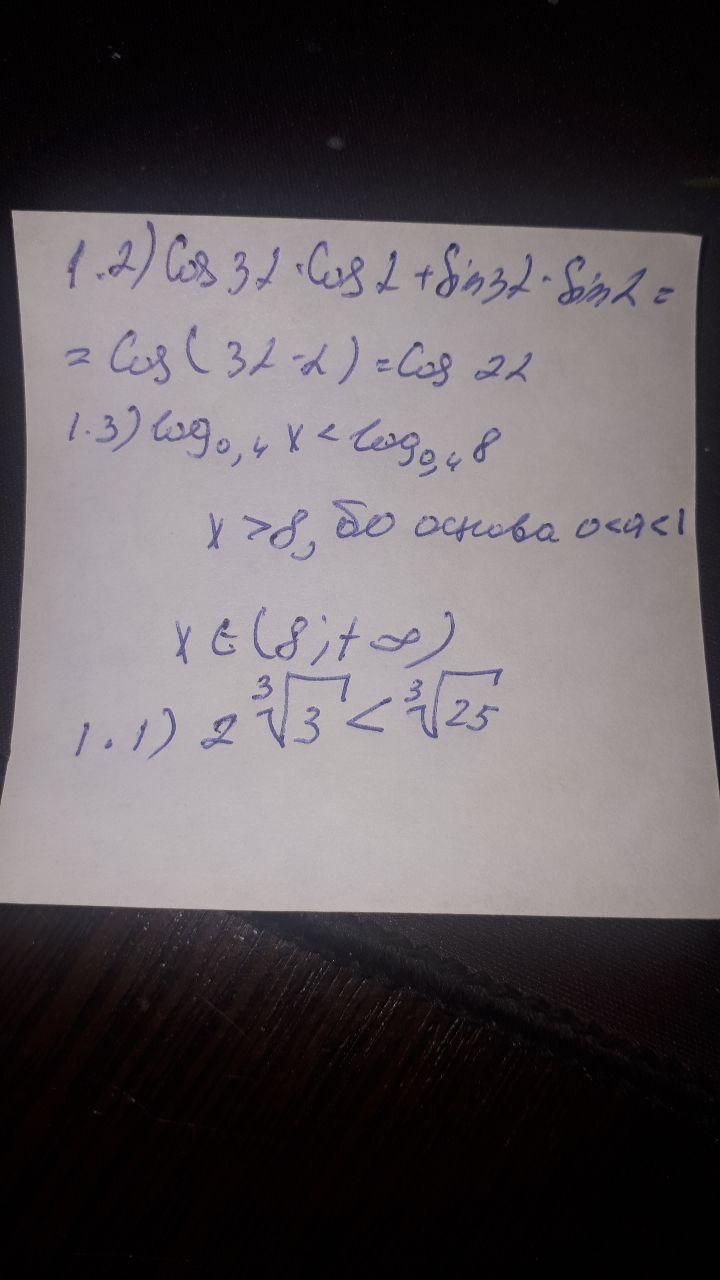 1.2) Cos 3α · Cos α + Sin 3α · Sin α =
= Cos (3α - α) = Cos 2α
1.3) log₀,₄ x < log₀,₄ 8
x > 8, бо основа 0<a<1
x ∈ (8; + ∞)
1.1) 2 ∛3 < ∛25